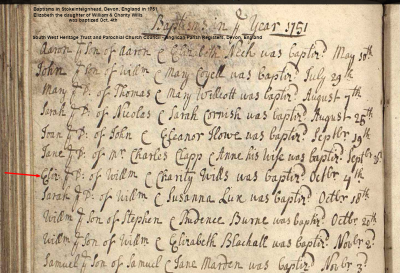 Baptisms in Stokeinteignhead, Devon, England in 1751,
Elizabeth the daughter of William & Charity Wills
was baptized Oct. 4th
South West Heritage Trust and Parochial Church Council - Anglican Parish Registers, Devon, England
Baptisms in ye Year 1751
Aaron ye Son of Aaron & Elizabeth Neck was baptzd May 10th
John ye Son of Willm & Mary Coyell was baptzd July 29th
Mary ye D: of Thomas & Mary Willcott was baptzd August 7th
Sarah ye D: of Nicolas & Sarah Cornish was baptzd August 25th
Joan ye D: of John & Eleanor Howe was baptzd Septbr 19th
Jane ye D: of Mr Charles Clapp & Anne his wife was baptzd Septbr
Eliz ye D: of Willm & Charity Wills was baptzd Octbr 4th
Sarah ye D: of Willm & Susanna Lux was baptzd Octbr 18th
Willm ye Son of Stephen & Prudence Burne was baptzd Octbr 20th
Willm ye Son of Willm & Elizabeth Blachall was baptzd Novbr 2d
Samuel ye Son of Samuel & Jane Marden was baptzd Novbr 3